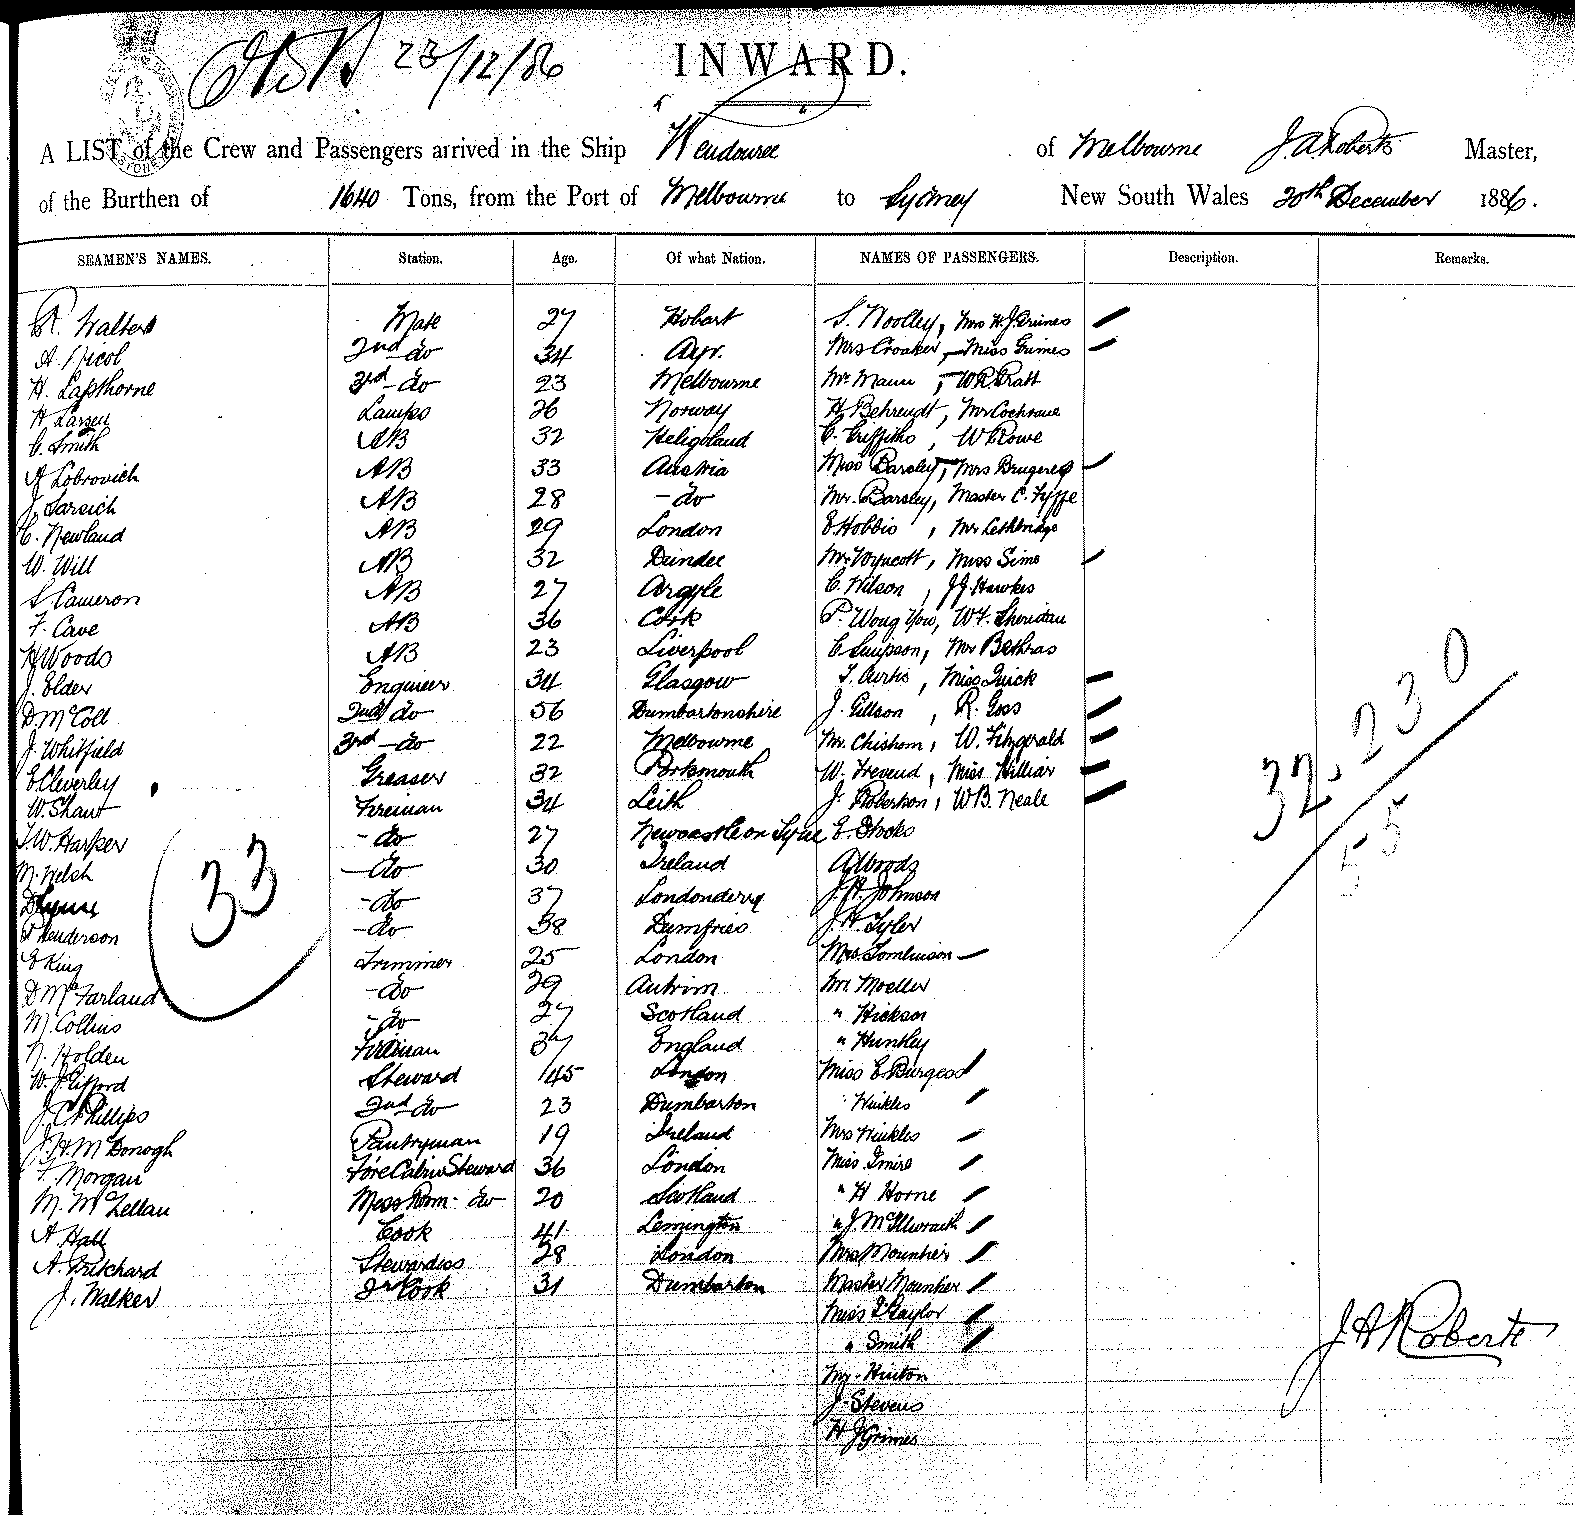 23/12/86
INWARD.
A LIST of the Crew and Passengers arrived in the Ship Wendouree of Melbourne J. A. Roberts Master,
of the Burthen of 1640 Tons, from the Port of Melbourne to Sydney New South Wales 20th December 1886.
SEAMEN'S NAMES. Station. Age. Of what Nation. NAMES OF PASSENGERS. Description. Remarks.
R. Walters Mate 27 Hobart S. Woolley, Mrs H.J. Grimes
A. Nicol 2nd do 34 Ayr. Mrs Croaker, Miss Grimes
H. Lapthorne 3rd - do 23 Melbourne Mr. Mann, W R Pratt
H Larsen Lamps 26 Norway H Behrendt, Mr Cochrane
C. Smith AB 32 Heligoland C. Griffiths, W Rowe
A Lobrovich AB 33 Austria Miss Barsley, Mrs Brugeres
J. Sarsich AB 28 - do Mr. Barsley, Master C. Fyffe
C. Newland AB 29 London E Hobbis, Mr Lethbridge
W. Will AB 32 Dundee Mr. Miss Sims
S. Cameron AB 27 Argyle C. Wilson, J J Hawkes
F. Cave AB 36 Cork P. Wong You, W.F. Sheridan
H Woods AB 23 Liverpool C Simpson, Mr
J. Elder Engineer 34 Glasgow T. Curtis, Miss Quick
D McColl 2nd do 56 Dumbartonshire J. Gillson, R. Goss
J. Whitfield 3rd - do 22 Melbourne Mr. Chishom, W. Fitzgerald
E Cleverley Greaser 32 Portsmouth W. Trevend, Miss Hilliar
W. Shaw Fireman 34 Leith J. Robertson, W B. Neale
T.W. Harper - do 27 Newcastle on Tyne E. Stocks
M. Welsh - do 30 Ireland A Woods
- do 37 Londonderry J. H. Johnson
P Henderson - do 38 Dumfries J. H. Tyler
E King Trimmer 25 London Mrs. Tomlinson
D McFarland - do 29 Antrim Mr. Moeller
M. Collins - do 27 Scotland " Hickson
N. Holden Fireman 37 England " Huntley
W. J. Gifford Steward 45 London Miss E Burgess
J. C. Phillips 2nd do 23 Dumbarton " Winkles
J. H. McDonogh Pantryman 19 Ireland Mrs Winkles
F. Morgan Fore Cabin Steward 36 London Miss Imire
M. McLellan Mess Room do 20 Scotland " H Horne
A. Hall Cook 41 Lemington " J. McIllwraith
A. Pritchard Stewardess 28 London Mrs Mountier
J. Walker 2n Cook 31 Dumbarton Master Mountier
Miss Taylor
" Smith
Mr. Hinton
J. Stevens
H J Grimes
33
32. 23 0
55
J A Roberts